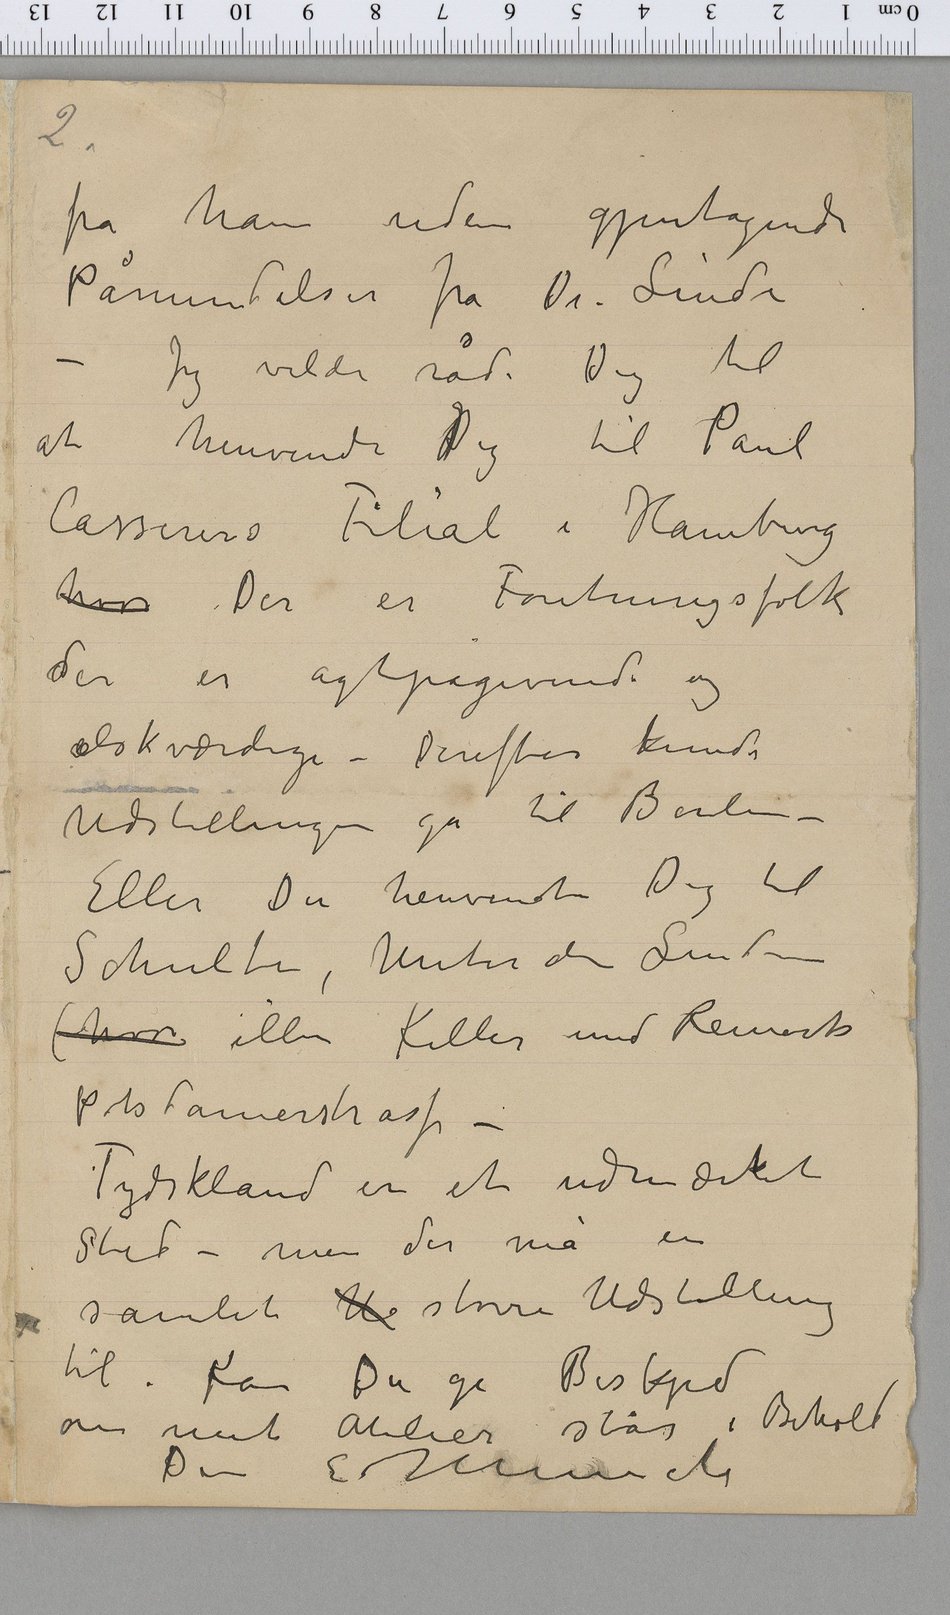 0 cm 1 2 3 4 5 6 7 8 9 10 11 12 13
2.
fra ham uden gjentagende
Påmindelser fra Dr. Linde
– Jeg vilde råde Dig til
at henvende Dig til Paul
Cassirers Filial i Hamburg
hvor Der er Foretningsfolk
der er agtpågivende og
elskværdige – Derefter kunde
Udstillingen gå til Berlin –
Eller Du henvendte Dig til
Schulte, Unter den Linden
(hvor eller Keller und Reiner
Potsdamerstrasse –
Tydskland er et udmærket
Sted – men der må en
samlet større Udstilling
til. Kan Du gi Beskjed
om mit Atelier står i Behold
Din E Munch